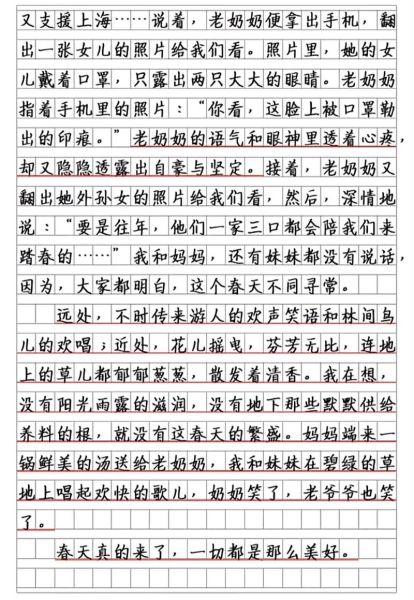 又支援上海……说着，老奶奶便拿出手机，翻
出一张女儿的照片给我们看。照片里，她的女
儿戴着口罩，只露出两只大大的眼睛。老奶奶
指着手机里的照片：“你看，这脸上被口罩勒
出的印痕。”老奶奶的语气和眼神里透着心疼，
却又隐隐透露出自豪与坚定。接着，老奶奶又
翻出她外孙女的照片给我们看，然后，深情地
说：“要是往年，他们一家三口都会陪我们来
踏春的……”我和妈妈，还有妹妹都没有说话，
因为，大家都明白，这个春天不同寻常。
远处，不时传来游人的欢声笑语和林间鸟
儿的欢唱；近处，花儿摇曳，芬芳无比，连地
上的草儿都郁郁葱葱，散发着清香。我在想，
没有阳光雨露的滋润，没有地下那些默默供给
养料的根，就没有这春天的繁盛。妈妈端来一
锅鲜美的汤送给老奶奶，我和妹妹在碧绿的草
地上唱起欢快的歌儿，奶奶笑了，老爷爷也笑
了。
春天真的来了，一切都是那么美好。